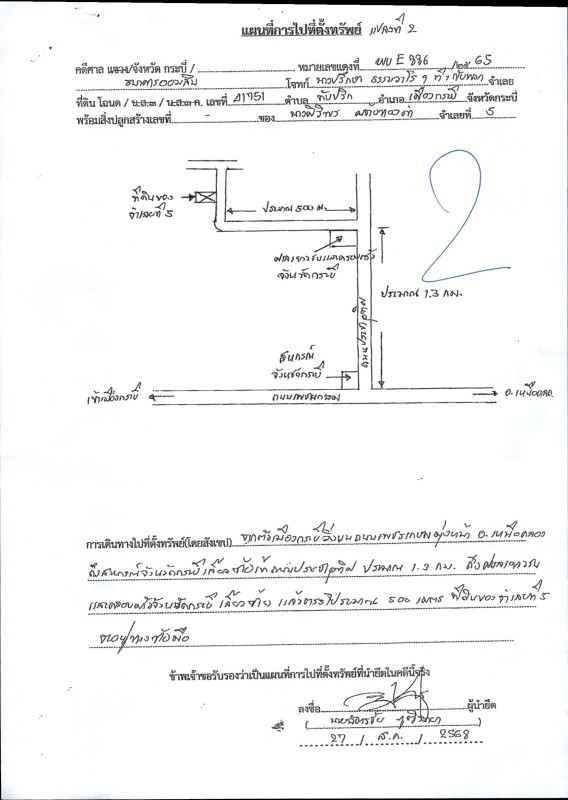 แผนที่การไปที่ตั้งทรัพย์ แปลงที่ 2
คดีศาล แขวง/จังหวัด กระบี่ / หมายเลขแดงที่ ผบ E 936 /25 65
ธนาคารออมสิน โจทก์ ที่ 1 กับพวก จำเลย
ที่ดิน โฉนด / น.ส.๓ / น.ส.๓ ก. เลขที่ 41751 ตำบล ทับปริก อำเภอ เมืองกระบี่ จังหวัดกระบี่
พร้อมสิ่งปลูกสร้างเลขที่ - ของ จำเลยที่ 5
2
ที่ดินของ
จำเลยที่ 5
ประมาณ 500 ม.
ศาลเยาวชนและครอบครัว
จังหวัดกระบี่
ประมาณ 1.3 กม.
ถนนประชาอุทิศ
สหกรณ์
จังหวัดกระบี่
เข้าเมืองกระบี่
ถนนเพชรเกษม
อ.เหนือคลอง
การเดินทางไปที่ตั้งทรัพย์(โดยสังเขป) จากตัวเมืองกระบี่ ถนนเพชรเกษมมุ่งหน้า อ.เหนือคลอง
ถึงสหกรณ์จังหวัดกระบี่เลี้ยวซ้ายเข้าถนนประชาอุทิศ ประมาณ 1.3 กม. ถึงศาลเยาวชน
และครอบครัวจังหวัดกระบี่ เลี้ยวซ้าย แล้วตรงไปประมาณ 500 เมตร ที่ดินของจำเลยที่ 5
จะอยู่ทางซ้ายมือ
ข้าพเจ้าขอรับรองว่าเป็นแผนที่การไปที่ตั้งทรัพย์ที่นำยึดในคดีนี้จริง
ลงชื่อ ผู้นำยึด
27 / ส.ค. / 2568